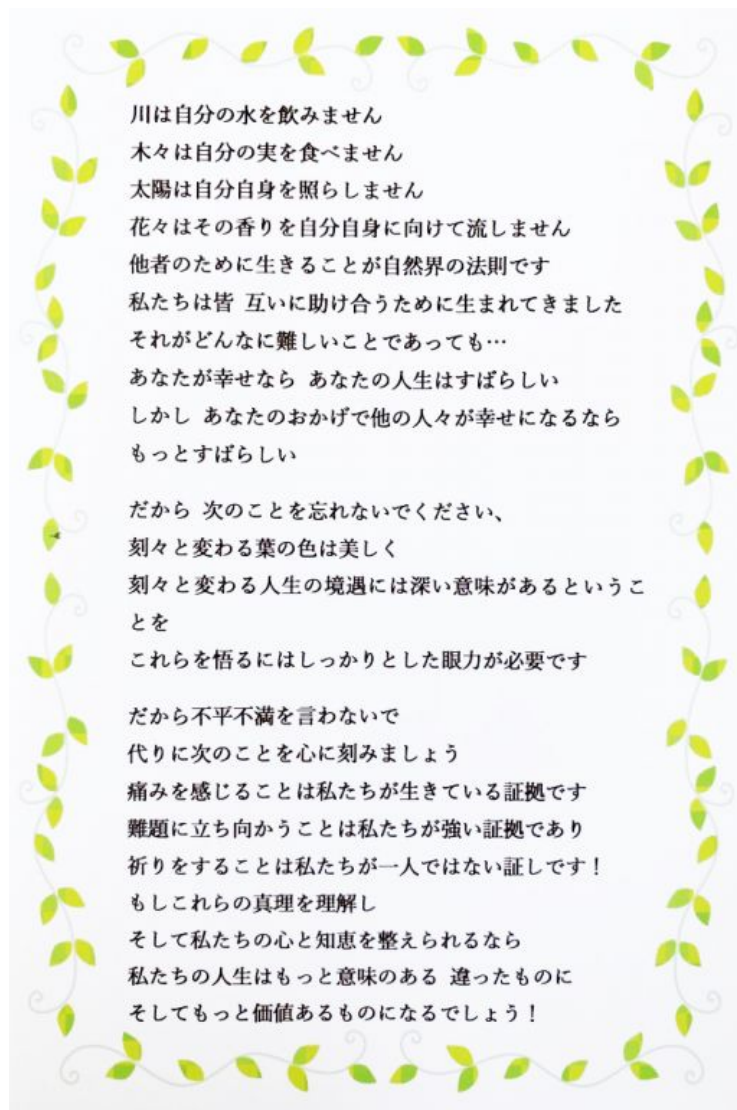 川は自分の水を飲みません
木々は自分の実を食べません
太陽は自分自身を照らしません
花々はその香りを自分自身に向けて流しません
他者のために生きることが自然界の法則です
私たちは皆 互いに助け合うために生まれてきました
それがどんなに難しいことであっても…
あなたが幸せなら あなたの人生はすばらしい
しかし あなたのおかげで他の人々が幸せになるなら
もっとすばらしい
だから 次のことを忘れないでください、
刻々と変わる葉の色は美しく
刻々と変わる人生の境遇には深い意味があるというこ
とを
これらを悟るにはしっかりとした眼力が必要です
だから不平不満を言わないで
代りに次のことを心に刻みましょう
痛みを感じることは私たちが生きている証拠です
難題に立ち向かうことは私たちが強い証拠であり
祈りをすることは私たちが一人ではない証しです！
もしこれらの真理を理解し
そして私たちの心と知恵を整えられるなら
私たちの人生はもっと意味のある 違ったものに
そしてもっと価値あるものになるでしょう！